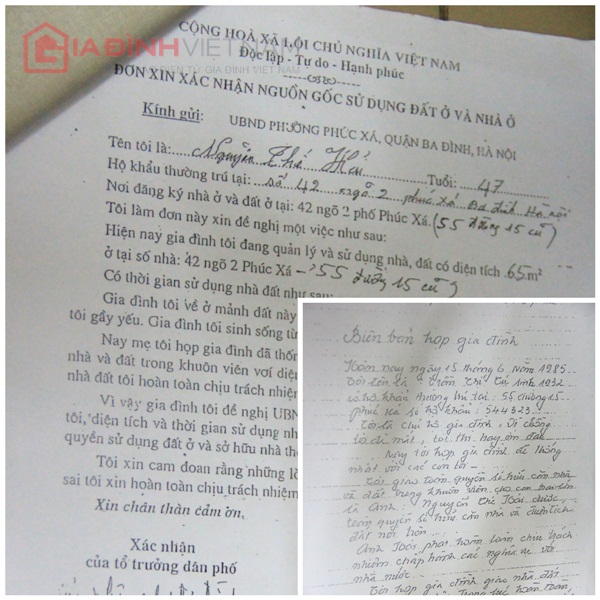 GIAĐÌNHVIETNAM
BÁO ĐIỆN TỬ GIA ĐÌNH VIỆT NAM
CỘNG HOÀ XÃ LỘI CHỦ NGHĨA VIỆT NAM
Độc lập - Tự do - Hạnh phúc
ĐƠN XIN XÁC NHẬN NGUỒN GỐC SỬ DỤNG ĐẤT Ở VÀ NHÀ Ở
Kính gửi: UBND PHƯỜNG PHÚC XÁ, QUẬN BA ĐÌNH, HÀ NỘI
Tên tôi là: Nguyễn Thế Tuổi: 47
Hộ khẩu thường trú tại: số 42 ngõ 2 phúc xá Ba đình Hà nội
Nơi đăng ký nhà ở và đất ở tại: 42 ngõ 2 phố Phúc Xá. (55 đường 15 cũ)
Tôi làm đơn này xin đề nghị một việc như sau:
Hiện nay gia đình tôi đang quản lý và sử dụng nhà, đất có diện tích 65m²
ở tại số nhà: 42 ngõ 2 Phúc Xá - 55 đường 15 cũ
Có thời gian sử dụng nhà đất như sau:
Gia đình tôi về ở mảnh đất này
tôi gầy yếu. Gia đình tôi sinh sống từ
Nay mẹ tôi họp gia đình đã thốn
nhà và đất trong khuôn viên với diện
nhà đất tôi hoàn toàn chịu trách nhiệm
Vì vậy gia đình tôi đề nghị UBN
tôi, diện tích và thời gian sử dụng nh
quyền sử dụng đất ở và sở hữu nhà th
Tôi xin cam đoan rằng những lờ
sai tôi xin hoàn toàn chịu trách nhiệm
Xin chân thàn cảm ơn.
Xác nhận
của tổ trưởng dân phố
Biên bản họp gia đình
Hôm nay ngày 15 tháng 6 năm 1985
Tôi tên là Trần Thị Tư sinh 1932
có hộ khẩu thường trú tại: 55 đường 15
phúc xá số hộ khẩu: 544323
Tôi là chủ hộ gia đình. Vì chồng
tôi đi mất, tôi thì hay ốm đau
Nay tôi họp gia đình để thống
nhất với các con là
Tôi giao toàn quyền sở hữu căn nhà
và đất trong khuôn viên cho con trai tôi
là Anh: Nguyễn Thế được
toàn quyền sở hữu căn nhà và diện tích
đất nói trên
Anh phải hoàn toàn chịu trách
nhiệm chấp hành các nghĩa vụ với
nhà nước.
Tôi họp gia đình giao nhà đất